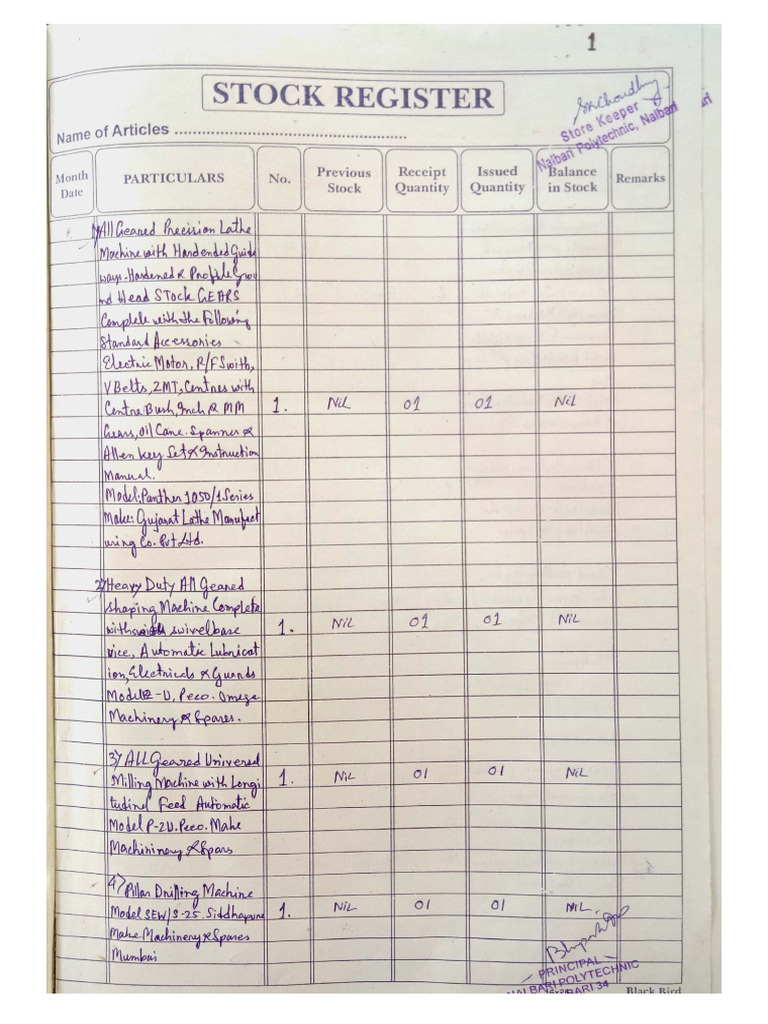 1
STOCK REGISTER
Name of Articles
Store Keeper
Nalbari Polytechnic, Nalbari
Month Date
PARTICULARS
No.
Previous Stock
Receipt Quantity
Issued Quantity
Balance in Stock
Remarks
1) All Geared Precision Lathe
Machine with Hardended Guide
ways. Hardened & Profile Grou
nd Head STock GEARS
Complete with the Following
Standard Accessories
Electric Motor, R/FSwith,
V Belts, 2MT, Centres with
Centre Bush, Inch & MM 1. NiL 01 01 NiL
Gears, Oil Cane. Spanner &
Allen key Set & Instruction
Manual.
Model: Panther 1050/1 Series
Make: Gujarat Lathe Manufact
uring Co. Pvt Ltd.
2) Heavy Duty All Geared
shaping Machine Complete
with swivelbase 1. NiL 01 01 NiL
vice, Automatic Lubricat
ion, Electricals & Guards
Model 2-U, Peco. Omega
Machinery & Spares.
3) ALL Geared Universal
Milling Machine with Longi 1. NiL 01 01 NiL
tudinal Feed Automatic
Model P-2U. Peco. Make
Machininery & Spars
4) Pillar Drilling Machine
Model SEW/S-25. Siddhapura 1. NiL 01 01 NiL.
Make Machinery & Spares
Mumbai
PRINCIPAL
NALBARI POLYTECHNIC
BARI 34
Black Bird